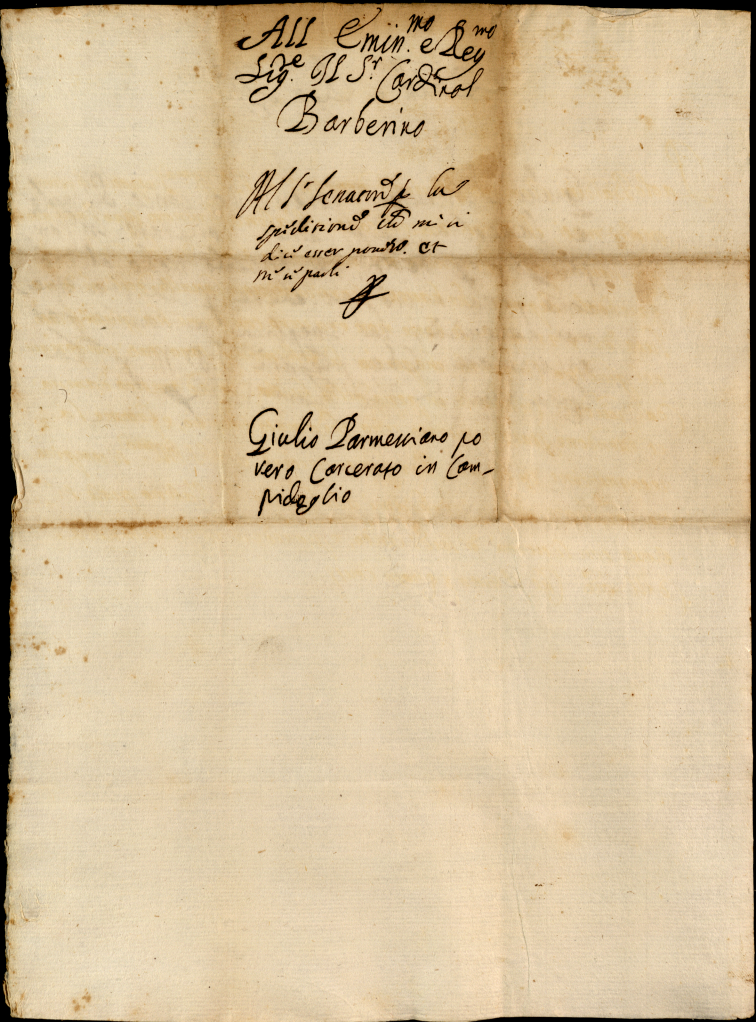 All Emin.mo e Reu.mo
Sig.re Il S.r Card.nal
Barberino
Al S.r Senatore per la
speditione
dice esser pouero. et
me ne parli
Giulio Parmegiano po
vero Carcerato in Cam-
pidoglio